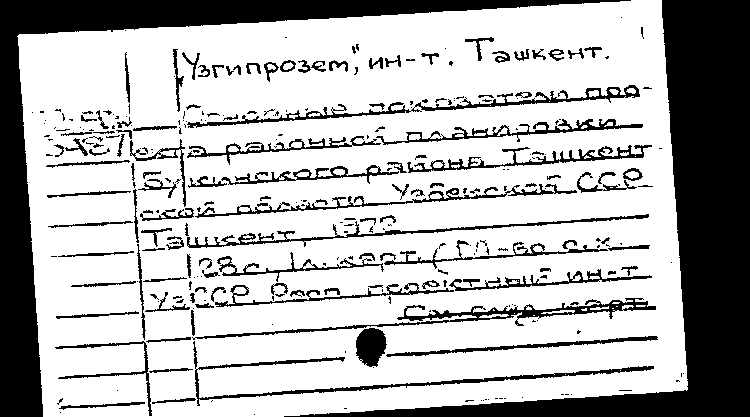 "Узгипрозем", ин-т. Ташкент.
Основные показатели про-
екта районной планировки
Букинского района Ташкент
ской области Узбекской ССР
Ташкент, 1972
28 с., 1 л. карт. (Гл-во с.х.
УзССР. Респ проектный ин-т
См след карт